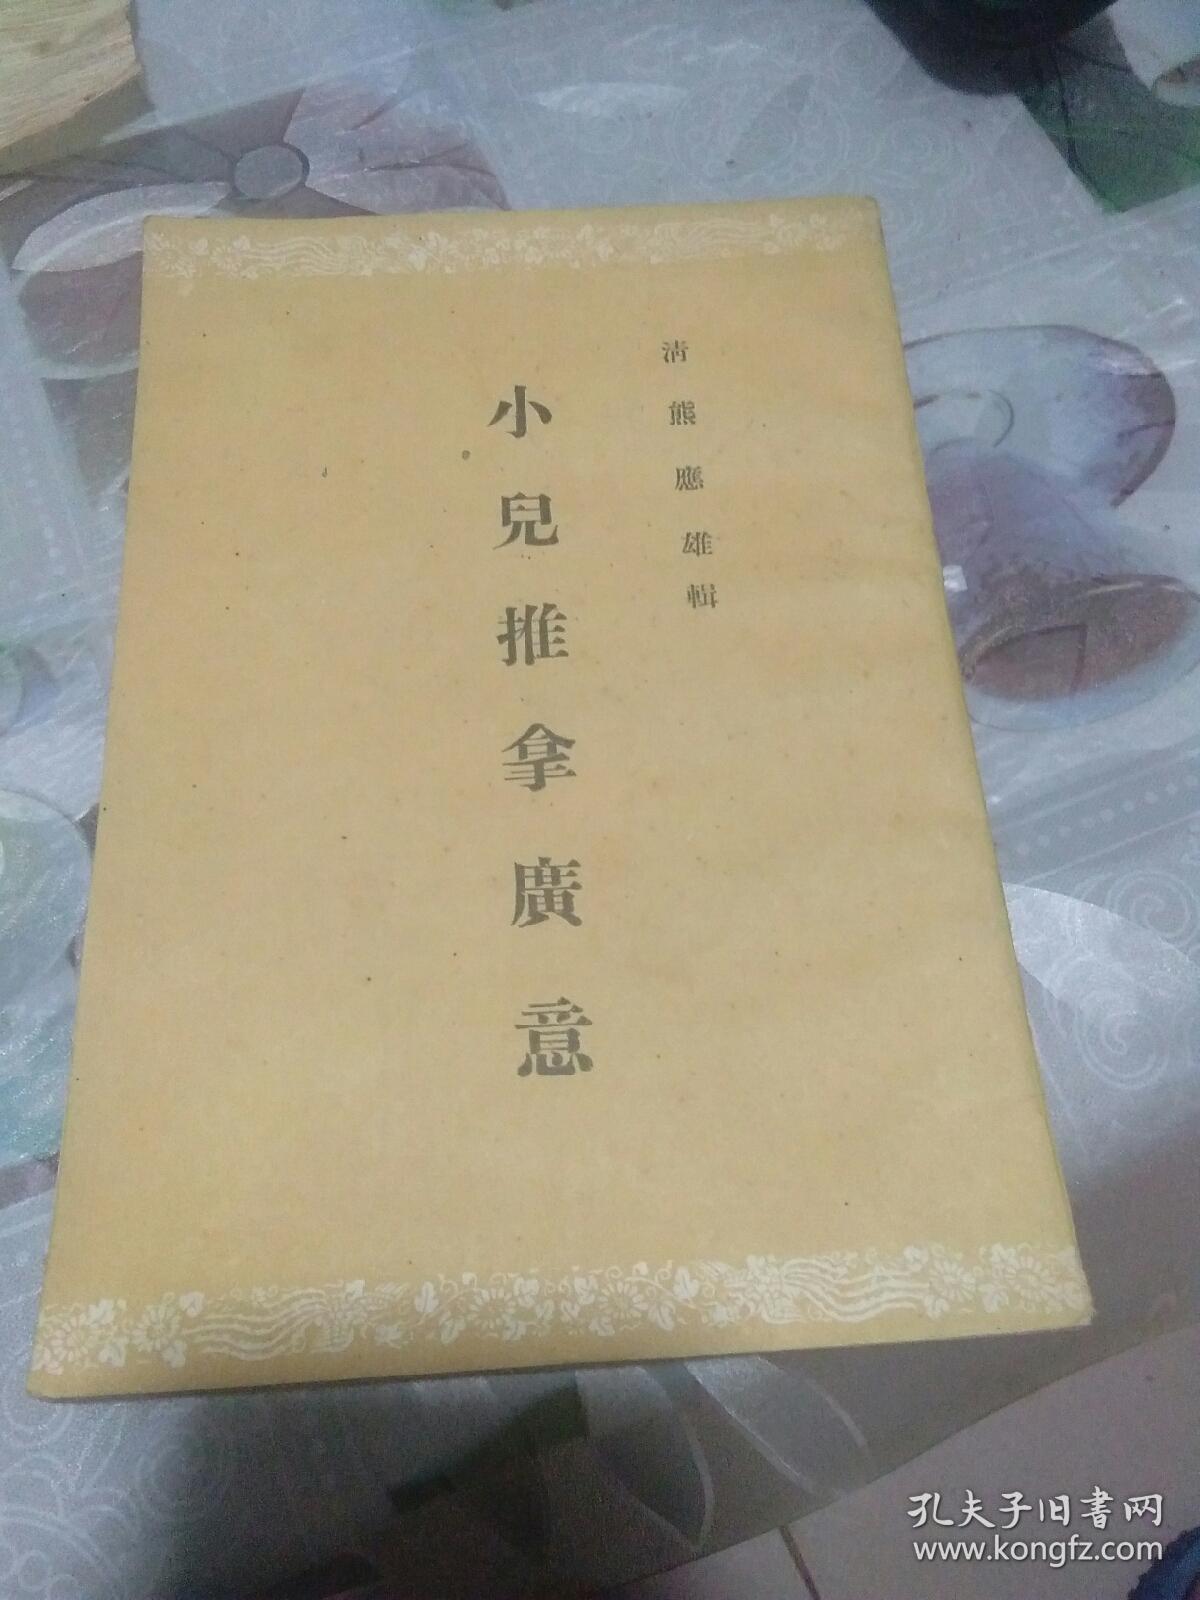 清熊應雄輯
小兒推拿廣意
孔夫子旧書网
www.kongfz.com